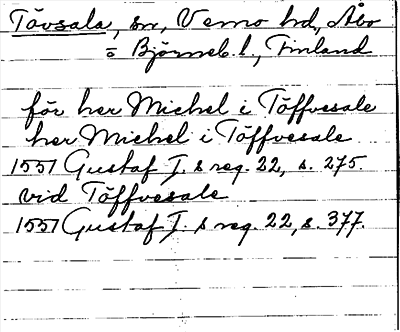 Tövsala, sn, Vemo hd, Åbo
o Björneb. l., Finland
för her Michel i Töffvesale
her Michel i Töffvesale
1557 Gustaf I. s reg. 22, s. 275.
vid Töffvesale
1557 Gustaf I. s reg. 22, s. 377.